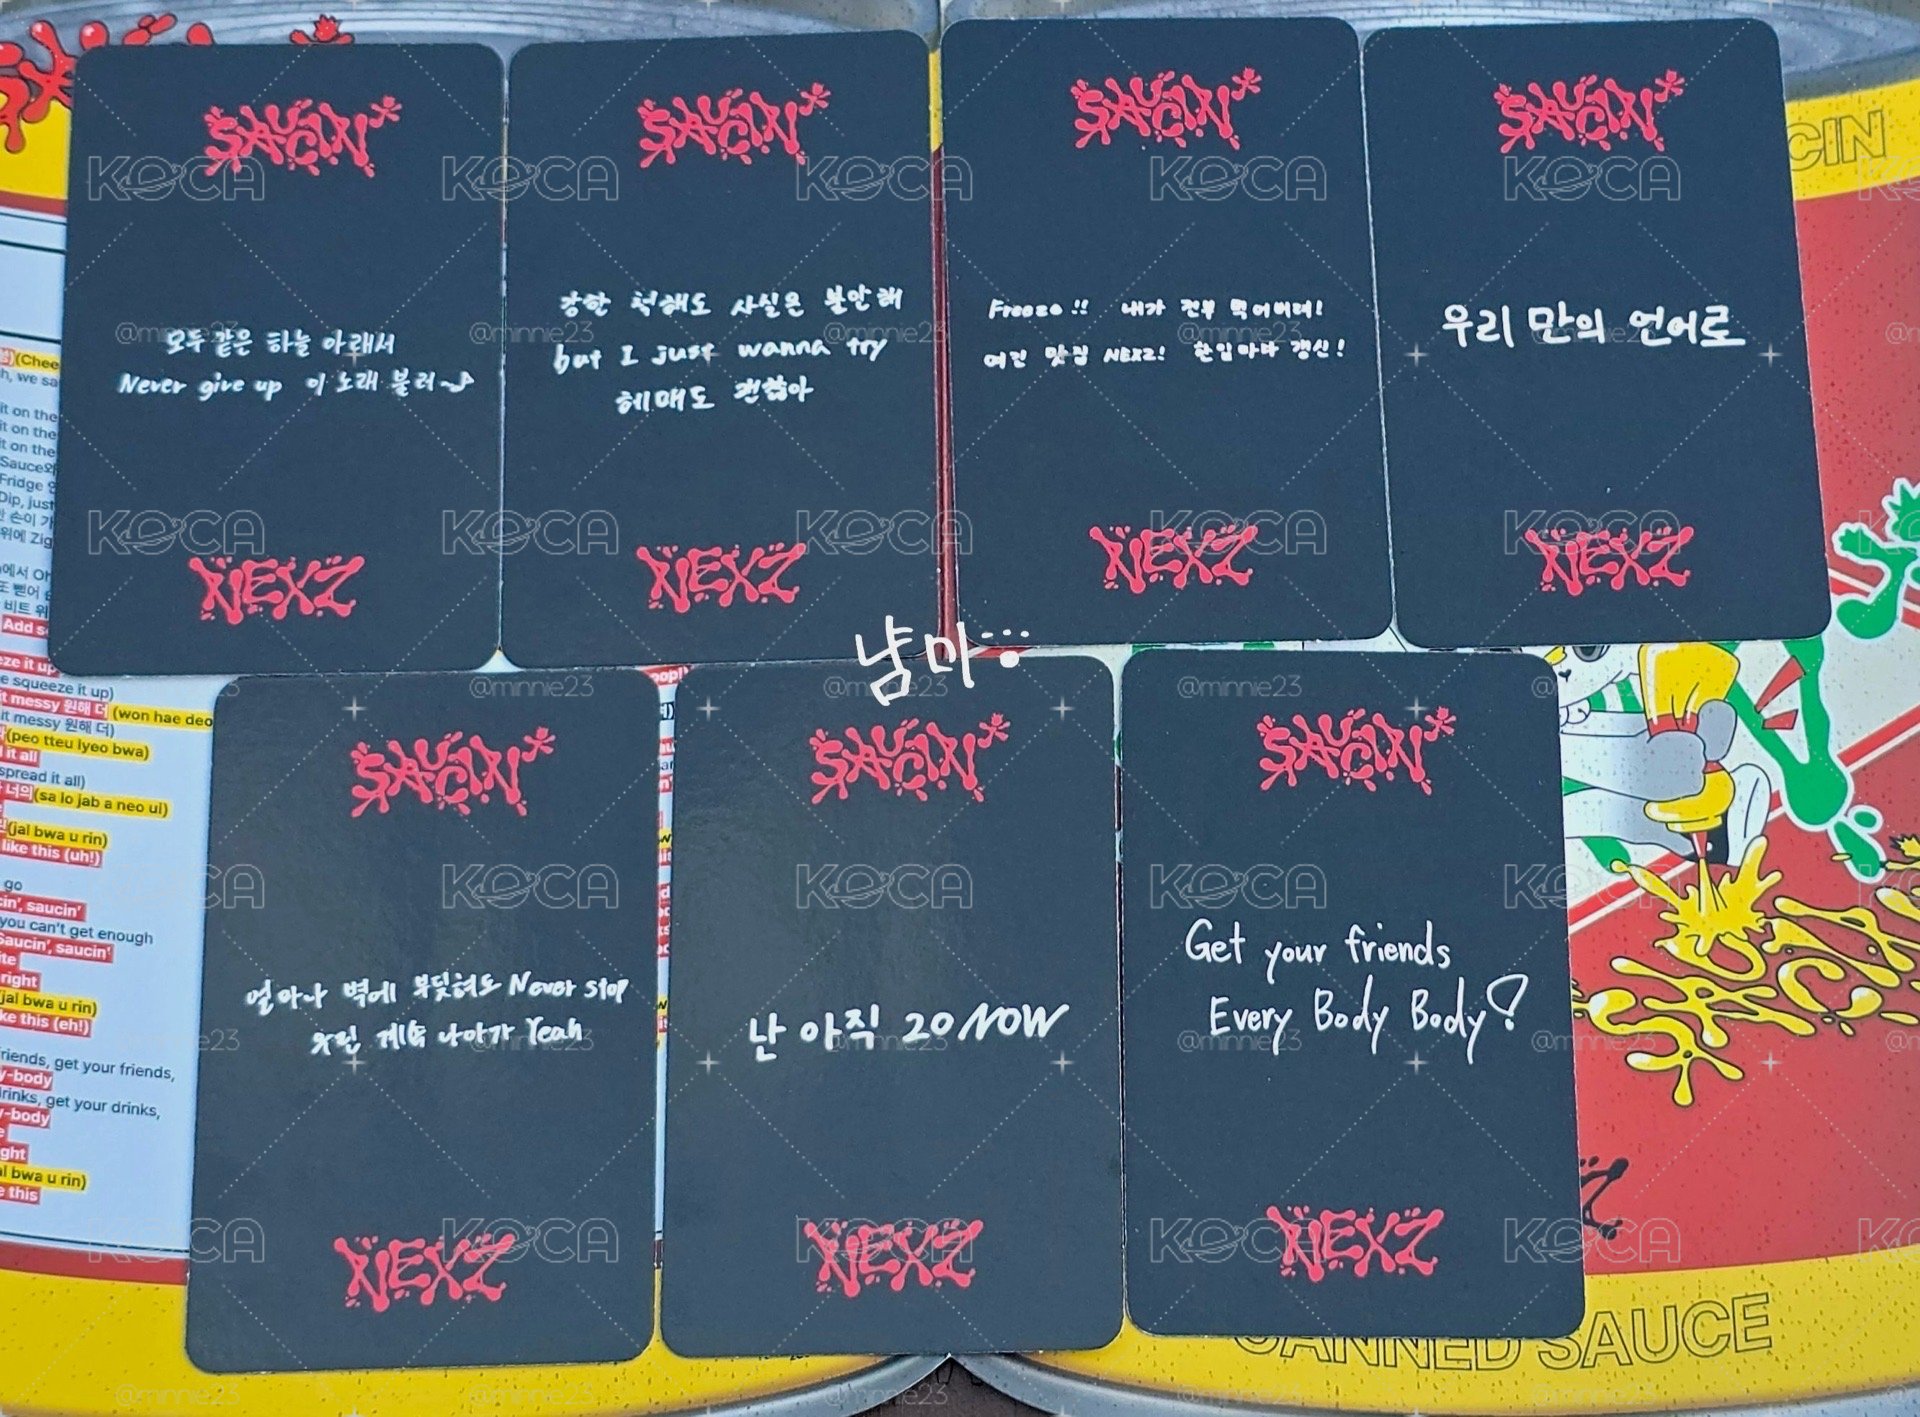 SAUCIN'
모두 같은 하늘 아래서
Never give up 이 노래 불러~♪
NEXZ
SAUCIN'
강한 척해도 사실은 불안해
but I just wanna try
헤매도 괜찮아
NEXZ
SAUCIN'
Freeze!! 내가 전부 먹어버려!
여긴 맛집 NEXZ! 한입마다 갱신!
NEXZ
SAUCIN'
우리만의 언어로
NEXZ
냠미
SAUCIN'
얼마나 벽에 부딪혀도 Never stop
우린 계속 나아가 Yeah
NEXZ
SAUCIN'
난 아직 20 NOW
NEXZ
SAUCIN'
Get your friends
Every Body Body!
NEXZ
(Chee
it on the
it on the
it on the
Sauce와
Fridge
Dip, just
위에 Zig
비트 위
Add s
squeeze it up)
it messy 원해 더 (won hae deo
it messy 원해 더)
(peo tteu lyeo bwa)
it all
spread it all)
너의(sa lo jab a neo ui)
(jal bwa u rin)
like this (uh!)
go
cin', saucin'
you can't get enough
Saucin', saucin'
right
jal bwa u rin)
ke this (eh!)
riends, get your friends,
y-body
drinks, get your drinks,
y-body
ght
al bwa u rin)
this
CIN
CANNED SAUCE
KOCA
@minnie23